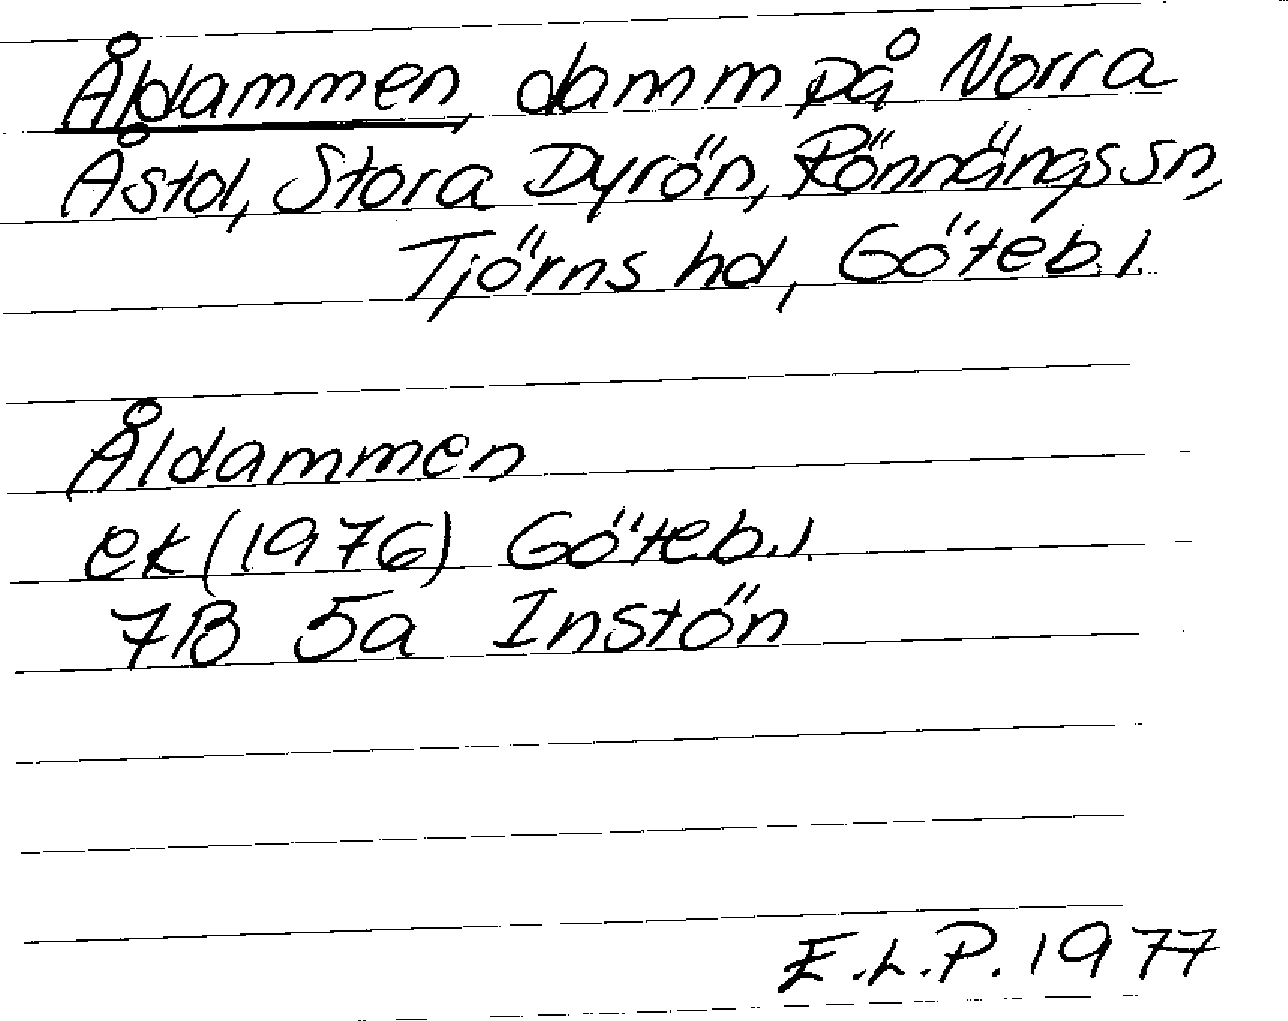 Åldammen, damm på Norra
Åstol, Stora Dyrön, Rönnängs sn,
Tjörns hd, Göteb. l.
Åldammen
ek (1976) Göteb. l.
7B 5a Instön
E.L.P. 1977